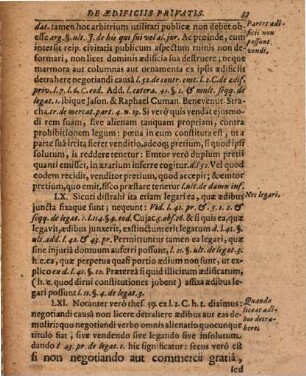 DE ÆDIFICIIS PRIVATIS. 33
dat. tamen hoc arbitrium utilitati publicæ non debet ob-
esse arg. §. ult. J. de his qui sui vel al. jur. Ac proinde, cum
intersit reip. civitatis publicum aspectum ruinis non de-
formari, non licet dominis ædificia sua destruere; neque
marmora aut columnas aut ornamenta ex ipsis ædificiis
detrahere negotiandi causâ l. 52. de contr. emt. l. 2. C. de ædif.
priv. l. 7. l. 6. C. eod. Add. l. cætera. 41. §. 1. & mult. seqq. de
legat. 1. ibique Jason. & Raphael Cuman. Benevenut. Stra-
cha, tr. de mercat. part. 4. n. 19. Si verò quis vendat ejusmo-
di res, sive suas, sive alienam tanquam propriam, contra
prohibitionem legum: pœna in eum constituta est, ut a
parte suâ irrita fieret venditio, adeoque pretium, si quod ipsi
solutum, is reddere tenetur: Emtor verò duplum pretii
quanti emisset, in ærarium inferre cogitur. Vel quod
eodem recidit, venditor pretium, quod accepit; & emtor
pretium, quo emit, fisco præstare tenetur
LX. Sicuti distrahi ita etiam legari ea, quæ ædibus
juncta sunt; nequeunt: l. 41. pr. & §. 1. & 7. &
seqq. de legat. 1. l. 114. §. 9. eod. Cujac. & si quis ea, quæ
legavit, ædibus junxerit, exstinctum erit legatum d. l. 41. §.
ult. add. l. 42. & 43. pr. Permittuntur tamen ea legari, quæ
sine injuriâ domuum auferri possunt, l. 21. §. ult. de legat. 3.
h. e. ea, quæ perpetua quasi portio ædium non sunt, ut ex-
plico ex d. l. 41. §. 12. Præterea si quid illicitum ædificatum,
(quod dirui constitutiones jubent) assiva ædibus le-
gari possunt l. 11. §. 14. de legat. 3.
LXI. Notanter verò thes. 59. ex l. 2. C. h. t. diximus:
negotiandi causâ non licere detrahere ædibus aut eas de-
moliri: quo negotiandi verbo omnis alienatio quocunque
titulo fiat, sive vendendo sive legando sive insolutum-
dando l. 43. pr. de legat. 1. hic significatur: secus verò est
si non negotiando aut commercii gratiâ,
sed
Partes ædi-
ficii non
possunt
vendi.
Nec legari.
Quando
liceat ædi-
bus detra-
here.